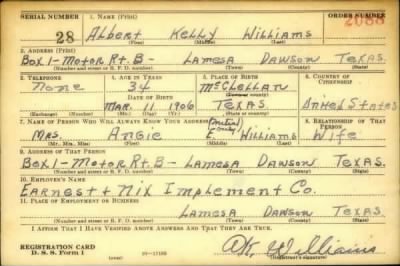 SERIAL NUMBER 1. NAME (Print) ORDER NUMBER
28 Albert Kelly Williams 2088
(First) (Middle) (Last)
2. ADDRESS (Print)
Box 1-Motor Rt. B- Lamesa Dawson Texas.
(Number and street or R. F. D. number) (Town) (County) (State)
3. TELEPHONE 4. AGE IN YEARS 5. PLACE OF BIRTH 6. COUNTRY OF CITIZENSHIP
None 34 McClellan
DATE OF BIRTH (Town or county)
Mar. 11 1906 Texas. United States
(Exchange) (Number) (Mo.) (Day) (Yr.) (State or country)
7. NAME OF PERSON WHO WILL ALWAYS KNOW YOUR ADDRESS 8. RELATIONSHIP OF THAT PERSON
Mrs. Angie E Williams Wife
(Mr., Mrs., Miss) (First) (Middle) (Last)
9. ADDRESS OF THAT PERSON
Box 1-Motor Rt. B- Lamesa Dawson Texas.
(Number and street or R. F. D. number) (Town) (County) (State)
10. EMPLOYER'S NAME
Earnest + Nix Implement Co.
11. PLACE OF EMPLOYMENT OR BUSINESS
Lamesa Dawson Texas.
(Number and street or R. F. D. number) (Town) (County) (State)
I AFFIRM THAT I HAVE VERIFIED ABOVE ANSWERS AND THAT THEY ARE TRUE.
REGISTRATION CARD
D. S. S. Form 1 AK Williams
(Registrant's signature)